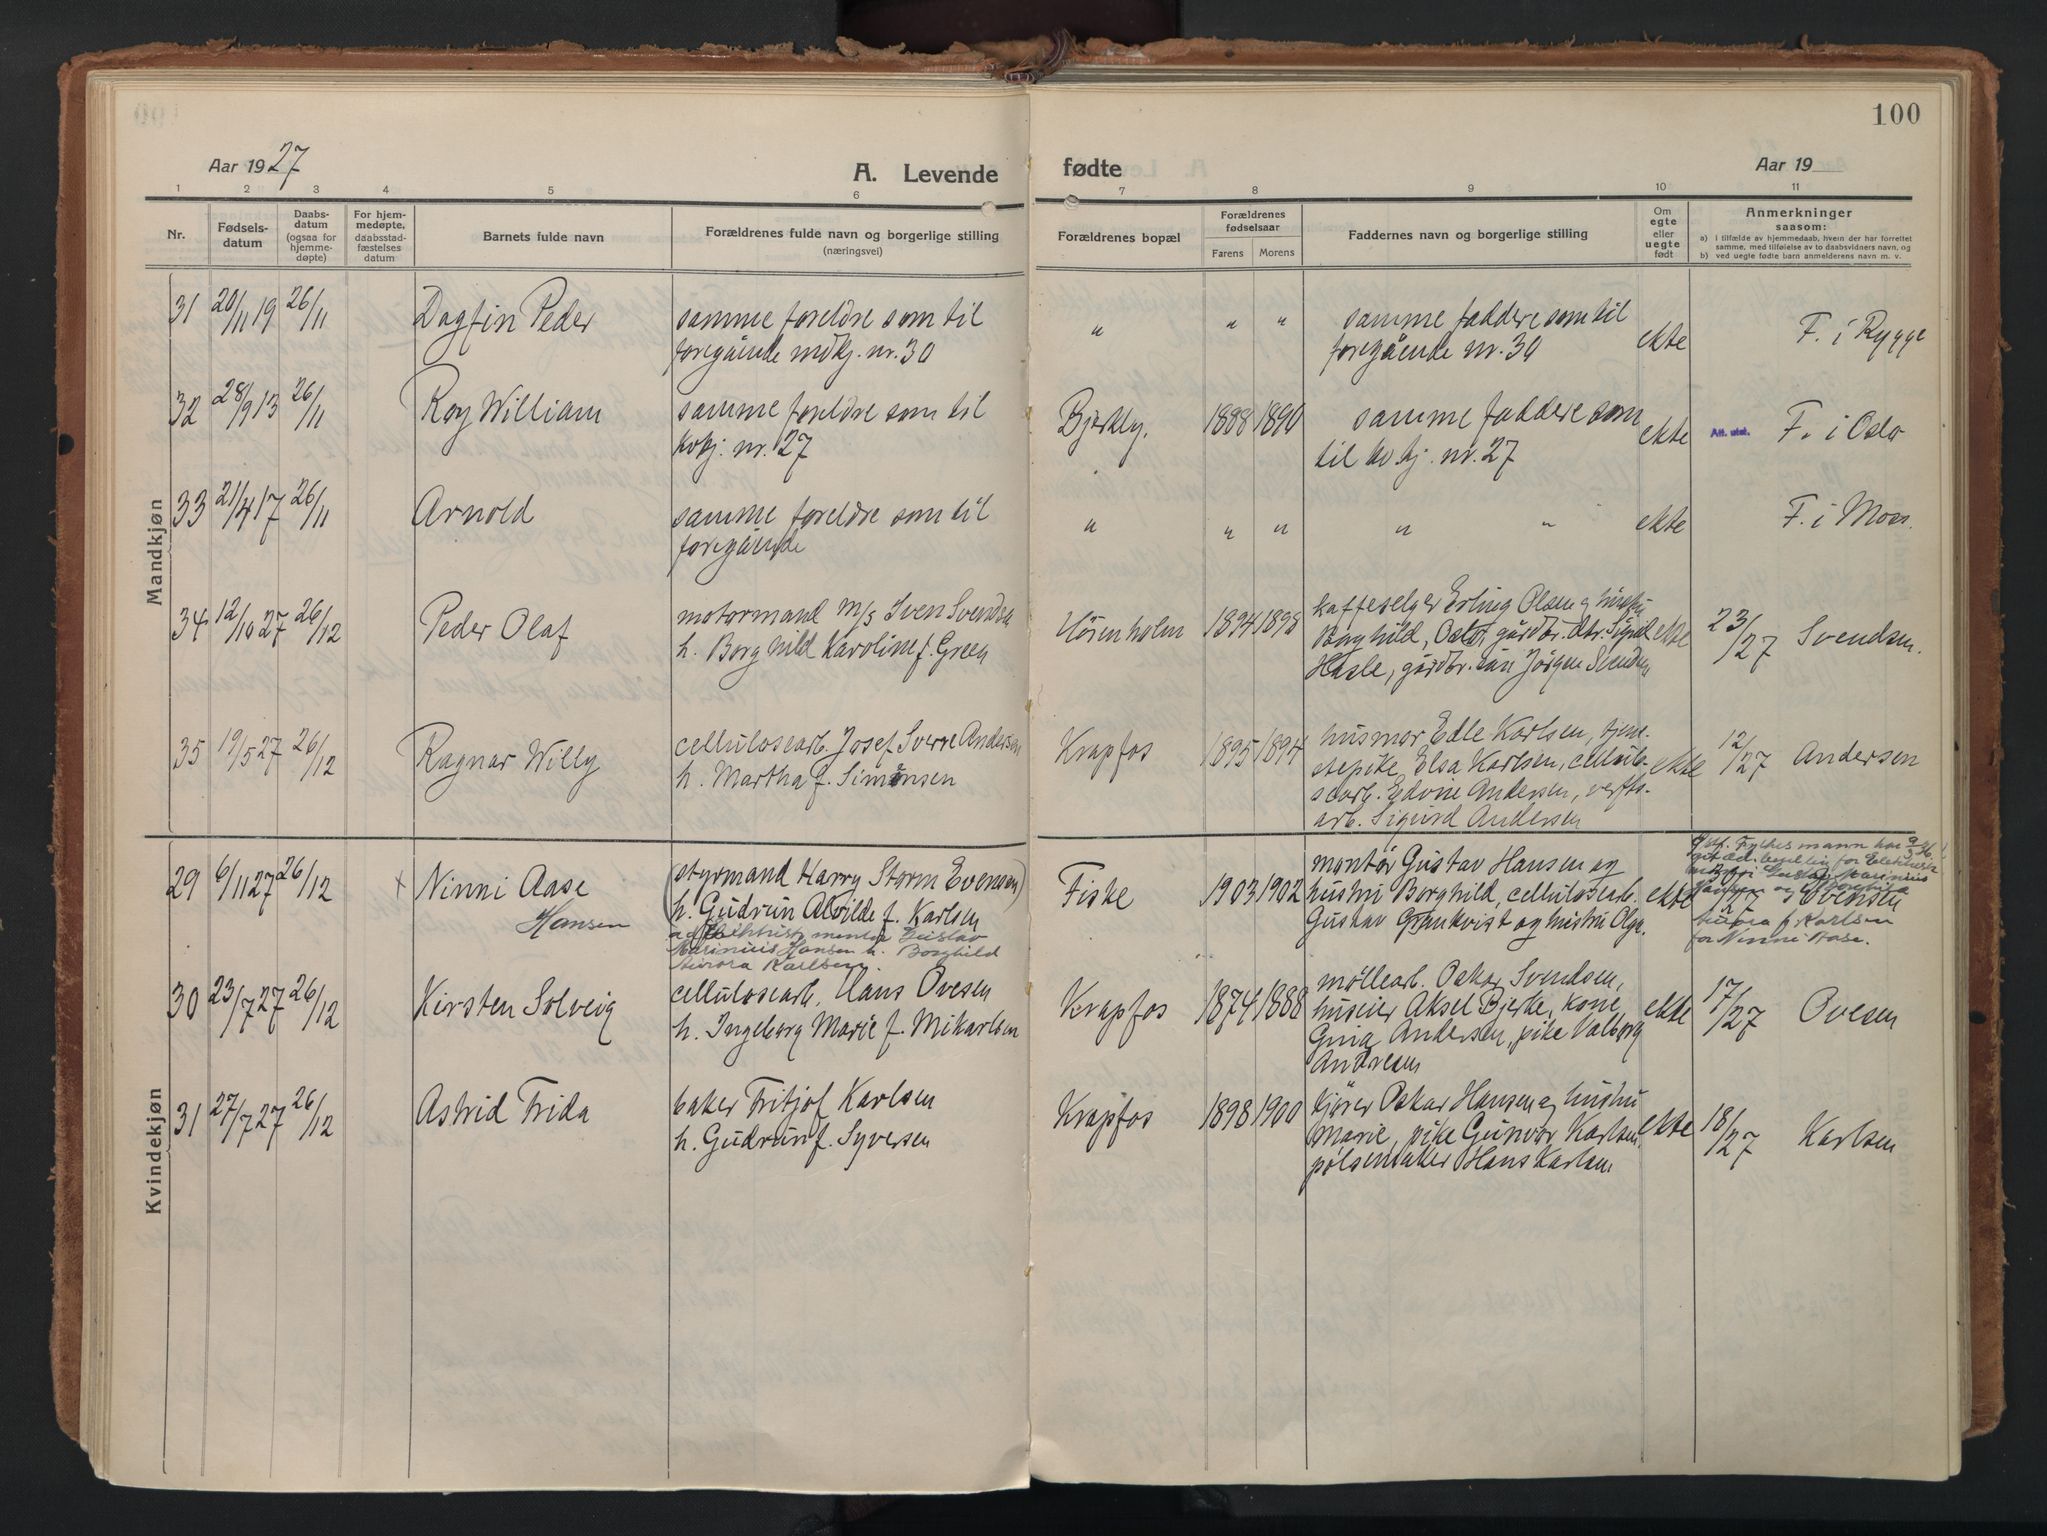 100
Aar 1927
A. Levende
fødte
Aar 19
1 2 3 4 5 6 7 8 9 10 11
Nr.
Fødsels-
datum
Daabs-
datum
(ogsaa for
hjemme-
døpte)
For hjem-
medøpte,
daabsstad-
fæstelses
datum
Barnets fulde navn
Forældrenes fulde navn og borgerlige stilling
(næringsvei)
Forældrenes bopæl
Forældrenes
fødselsaar
Farens Morens
Faddernes navn og borgerlige stilling
Om
egte
eller
uegte
født
Anmerkninger
saasom:
a) I tilfælde av hjemmedaab, hvem der har forrettet
samme, med tilføielse av to daabsvidners navn, og
b) ved uegte fødte barn anmelderens navn m. v.
Mandkjøn
31 20/11 19 26/11 Dagfin Peder
samme foreldre som til
foregående mdkj. nr. 30
" " "
samme faddere som til
foregående nr. 30
ekte F. i Rygge
32 28/9 13 26/11 Roy William
samme foreldre som til
kvkj. nr. 27
Bjerkly. 1888 1890
samme faddere som
til kv.kj. nr. 27
ekte Att. utst. F. i Oslo
33 21/4 17 26/11 Arnold
samme foreldre som til
foregående
" " " " "
ekte F. i Moss.
34 12/10 27 26/12 Peder Olaf
motormand m/s Iven Svendsen
h. Borghild Karoline f. Green
Hösenholm 1894 1898
kaffeselger Erling Olsen og hustru
Borghild, Oslo, gårdbr. dtr. Sigrid
Hasle, gårdbr. sön Jörgen Svendsen
ekte 23/12 27 Svendsen.
35 19/5 27 26/12 Ragnar Willy
cellulosearb. Josef Sverre Andersen
h. Martha f. Simonsen
Krapfos 1895 1894
husmor Edle Karlsen, tjene-
stepike Elsa Karlsen, cellulo-
searb. Edvne Andersen, verfts-
arb. Sigurd Andersen
ekte 12/12 27 Andersen
Kvindekjøn
29 6/11 27 26/12 x Ninni Aase
Hansen
(styrmand Harry Storm Evensen)
h. Gudrun Alvilde f. Karlsen
ad. Elektrisk montør Gustav
Marinius Hansen h. Borghild
Aurora Karlsen.
Fiske 1903 1902
montör Gustav Hansen og
hustru Borghild, cellulosearb.
Gustav Grönkvist og hustru Olga.
ekte
Fylkesmann har
bevilling for
Gustav Marinius
Hansen og Borghild
27 Evensen
Aurora f. Karlsen
for Ninni Aase.
30 23/7 27 26/12 Kirsten Solveig
cellulosearb. Hans Ovesen
h. Ingeborg Marie f. Mikarlsen
Krapfos 1874 1888
møllearb. Oskar Svendsen,
huseier Aksel Bjerke, kone
Gina Andersen, pike Valborg
Andresen
ekte 17/12 27 Ovesen
31 27/7 27 26/12 Astrid Frida
baker Fritjof Karlsen
h. Gudrun f. Syversen
Krapfos 1898 1900
kjörer Oskar Hansen og hustru
Marie, pike Gunvor Karlsen,
pölsemaker Hans Karlsen
ekte 18/12 27 Karlsen